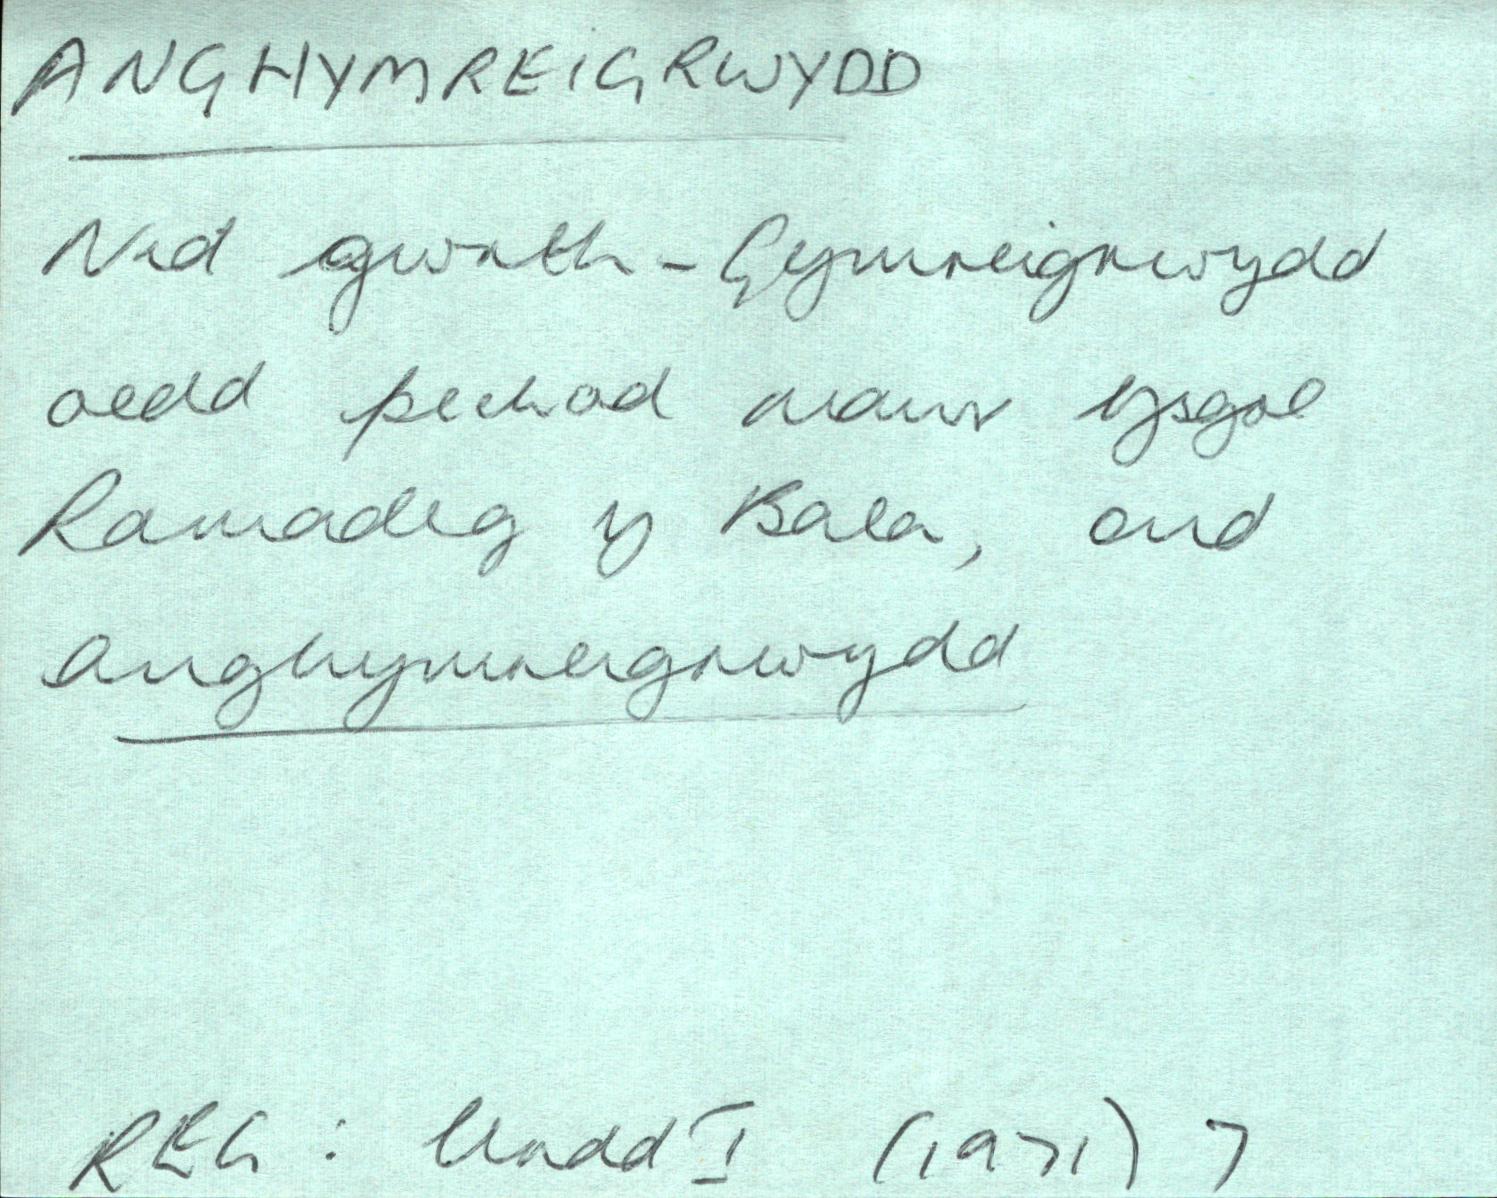 ANGHYMREIGRWYDD
Nid gwrth-Gymreigrwydd
oedd pechod mawr ysgol
Ramadeg y Bala, ond
anghymreigrwydd
REG: Urdd I (1971) 7